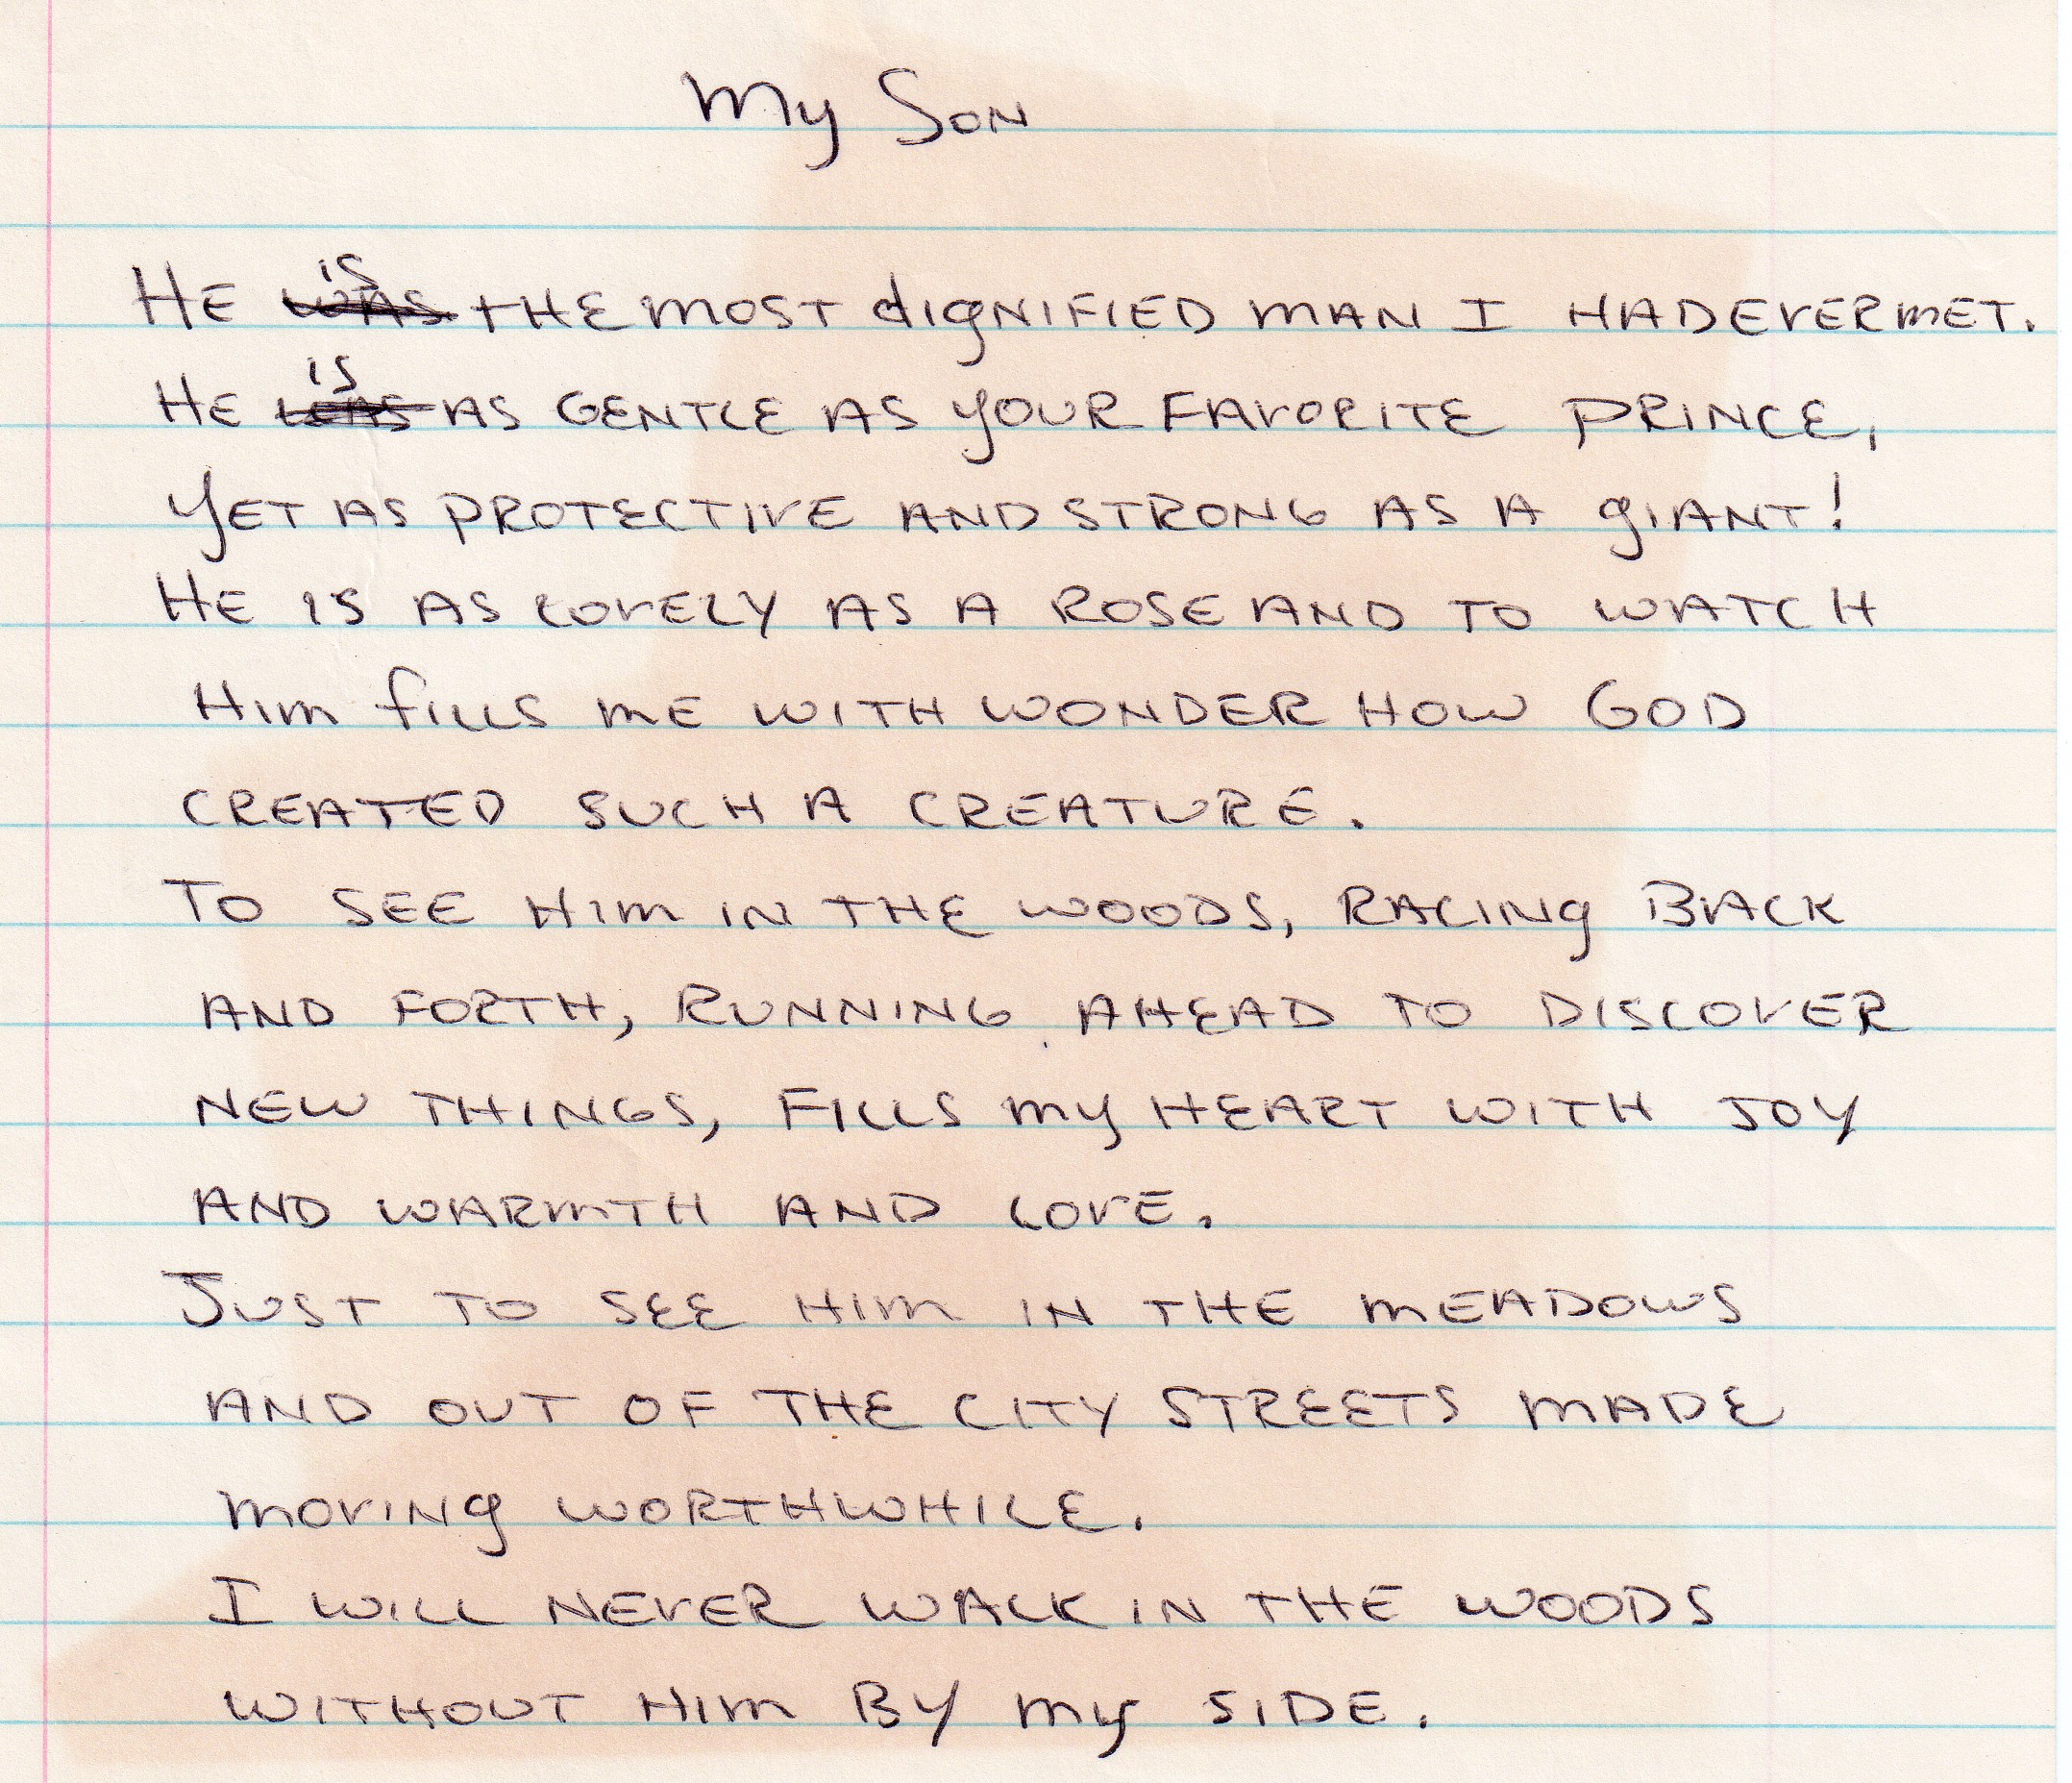 My Son
HE is THE MOST dIgNIFIED MAN I HAD EVER MET.
HE is AS GENTLE AS YOUR FAVORITE PRINCE,
YET AS PROTECTIVE AND STRONG AS A gIANT!
HE IS AS LOVELY AS A ROSE AND TO WATCH
HIM fILLS ME WITH WONDER HOW GOD
CREATED SUCH A CREATURE.
TO SEE HIM IN THE WOODS, RACINg BACK
AND FORTH, RUNNING AHEAD TO DISCOVER
NEW THINGS, FILLS My HEART WITH JOY
AND WARMTH AND LOVE.
JUST TO SEE HIM IN THE MEADOWS
AND OUT OF THE CITY STREETS MADE
MOVINg WORTHWHILE.
I WILL NEVER WALK IN THE WOODS
WITHOUT HIM BY My SIDE.